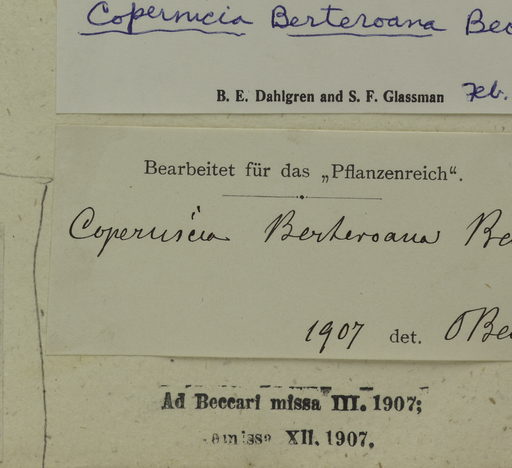 Copernicia Berteroana Bec
B. E. Dahlgren and S. F. Glassman Feb.
Bearbeitet für das „Pflanzenreich“.
Copernicia Berteroana Be
1907 det. OBec
Ad Beccari missa III. 1907;
XII. 1907.